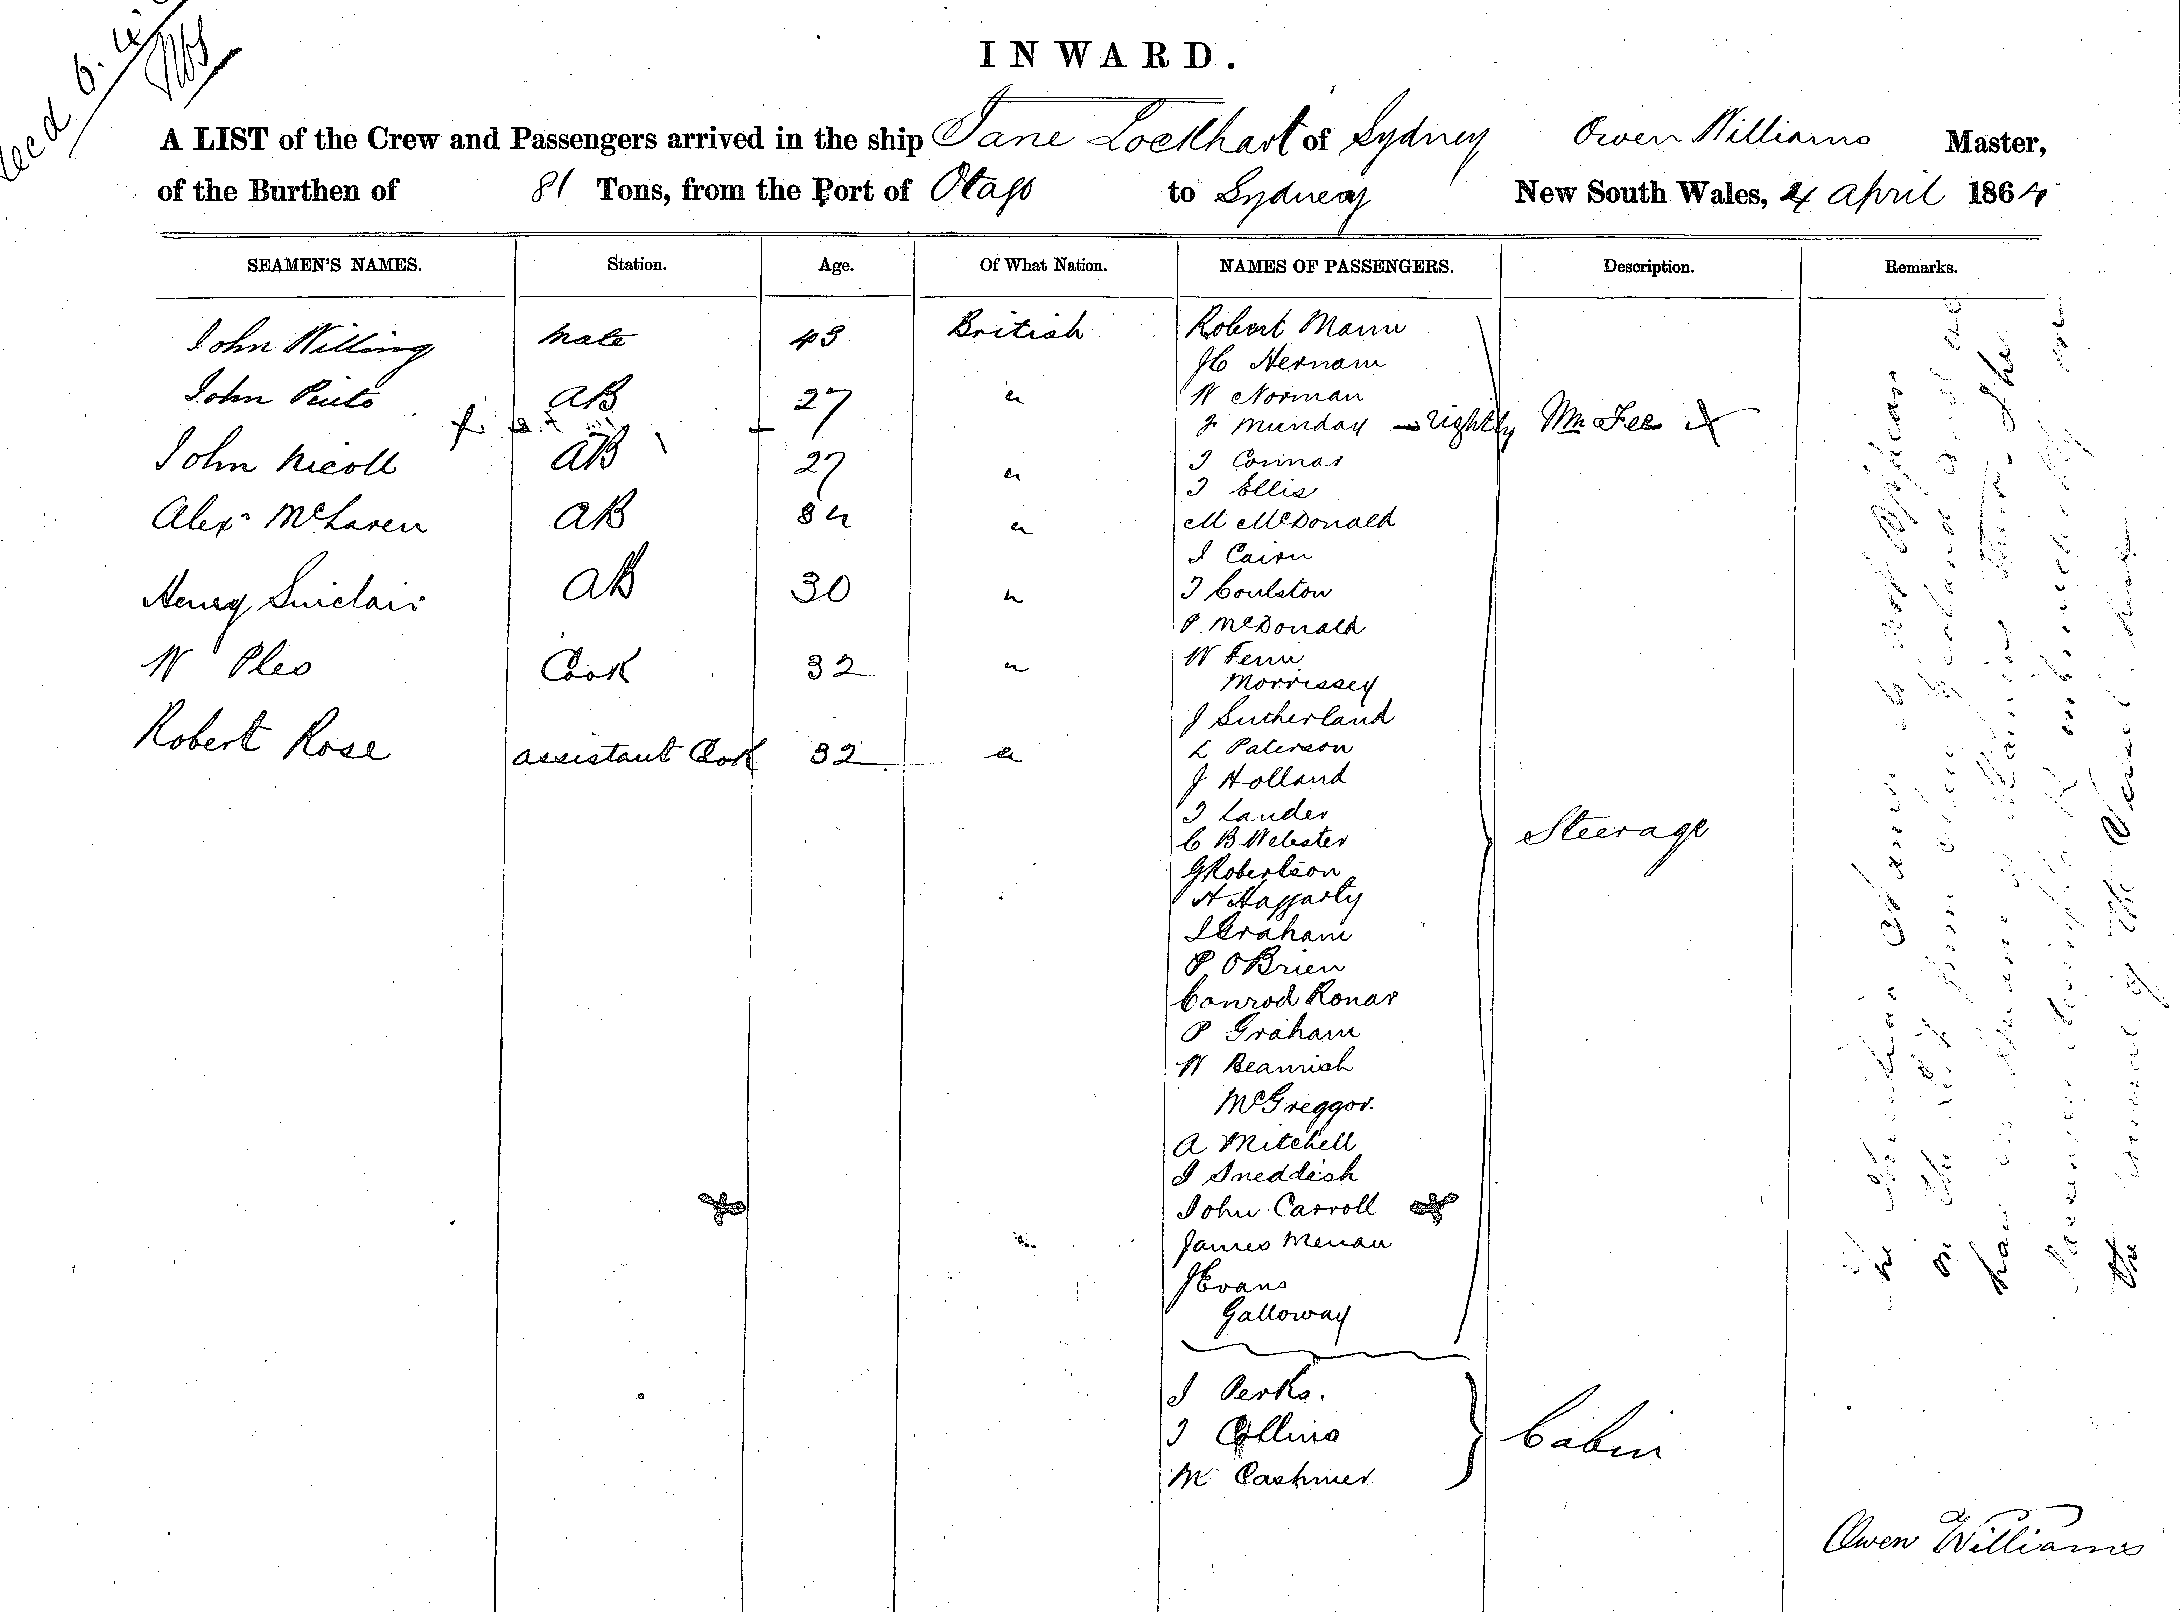 Recd 6.
INWARD.
A LIST of the Crew and Passengers arrived in the ship Jane Lockhart of Sydney Owen Williams Master,
of the Burthen of 81 Tons, from the Port of Otago to Sydney New South Wales, 4 April 1864
SEAMEN'S NAMES. Station. Age. Of What Nation. NAMES OF PASSENGERS. Description. Remarks.
John Willing Mate 43 British
John Pinto AB 27 "
John Nicoll AB 27 "
Alexr McLaren AB 34 "
Henry Sinclair AB 30 "
W Pleo Cook 32 "
Robert Rose assistant Cook 32 "
Robert Mann
W Norman
J Munday — rightly Mr Fee X
J Connar
J Ellis
M McDonald
J Cairn
J Coulston
P. McDonald
W Fenn
Morrissey
J Sutherland
L Paterson
J Holland
J Lauder
C B Webster
G Robertson
H Haggarty
J Graham
P OBrien
Conrod Ronar
P Graham
W Beamish
McGreggor.
A Mitchell
J Sneddish
John Carroll
James Menau
J Evans
Galloway
Steerage
J Perks.
J Collins
M Cashmer
Cabin
name is not
on the list
the arrival of the Vessel here
Owen Williams